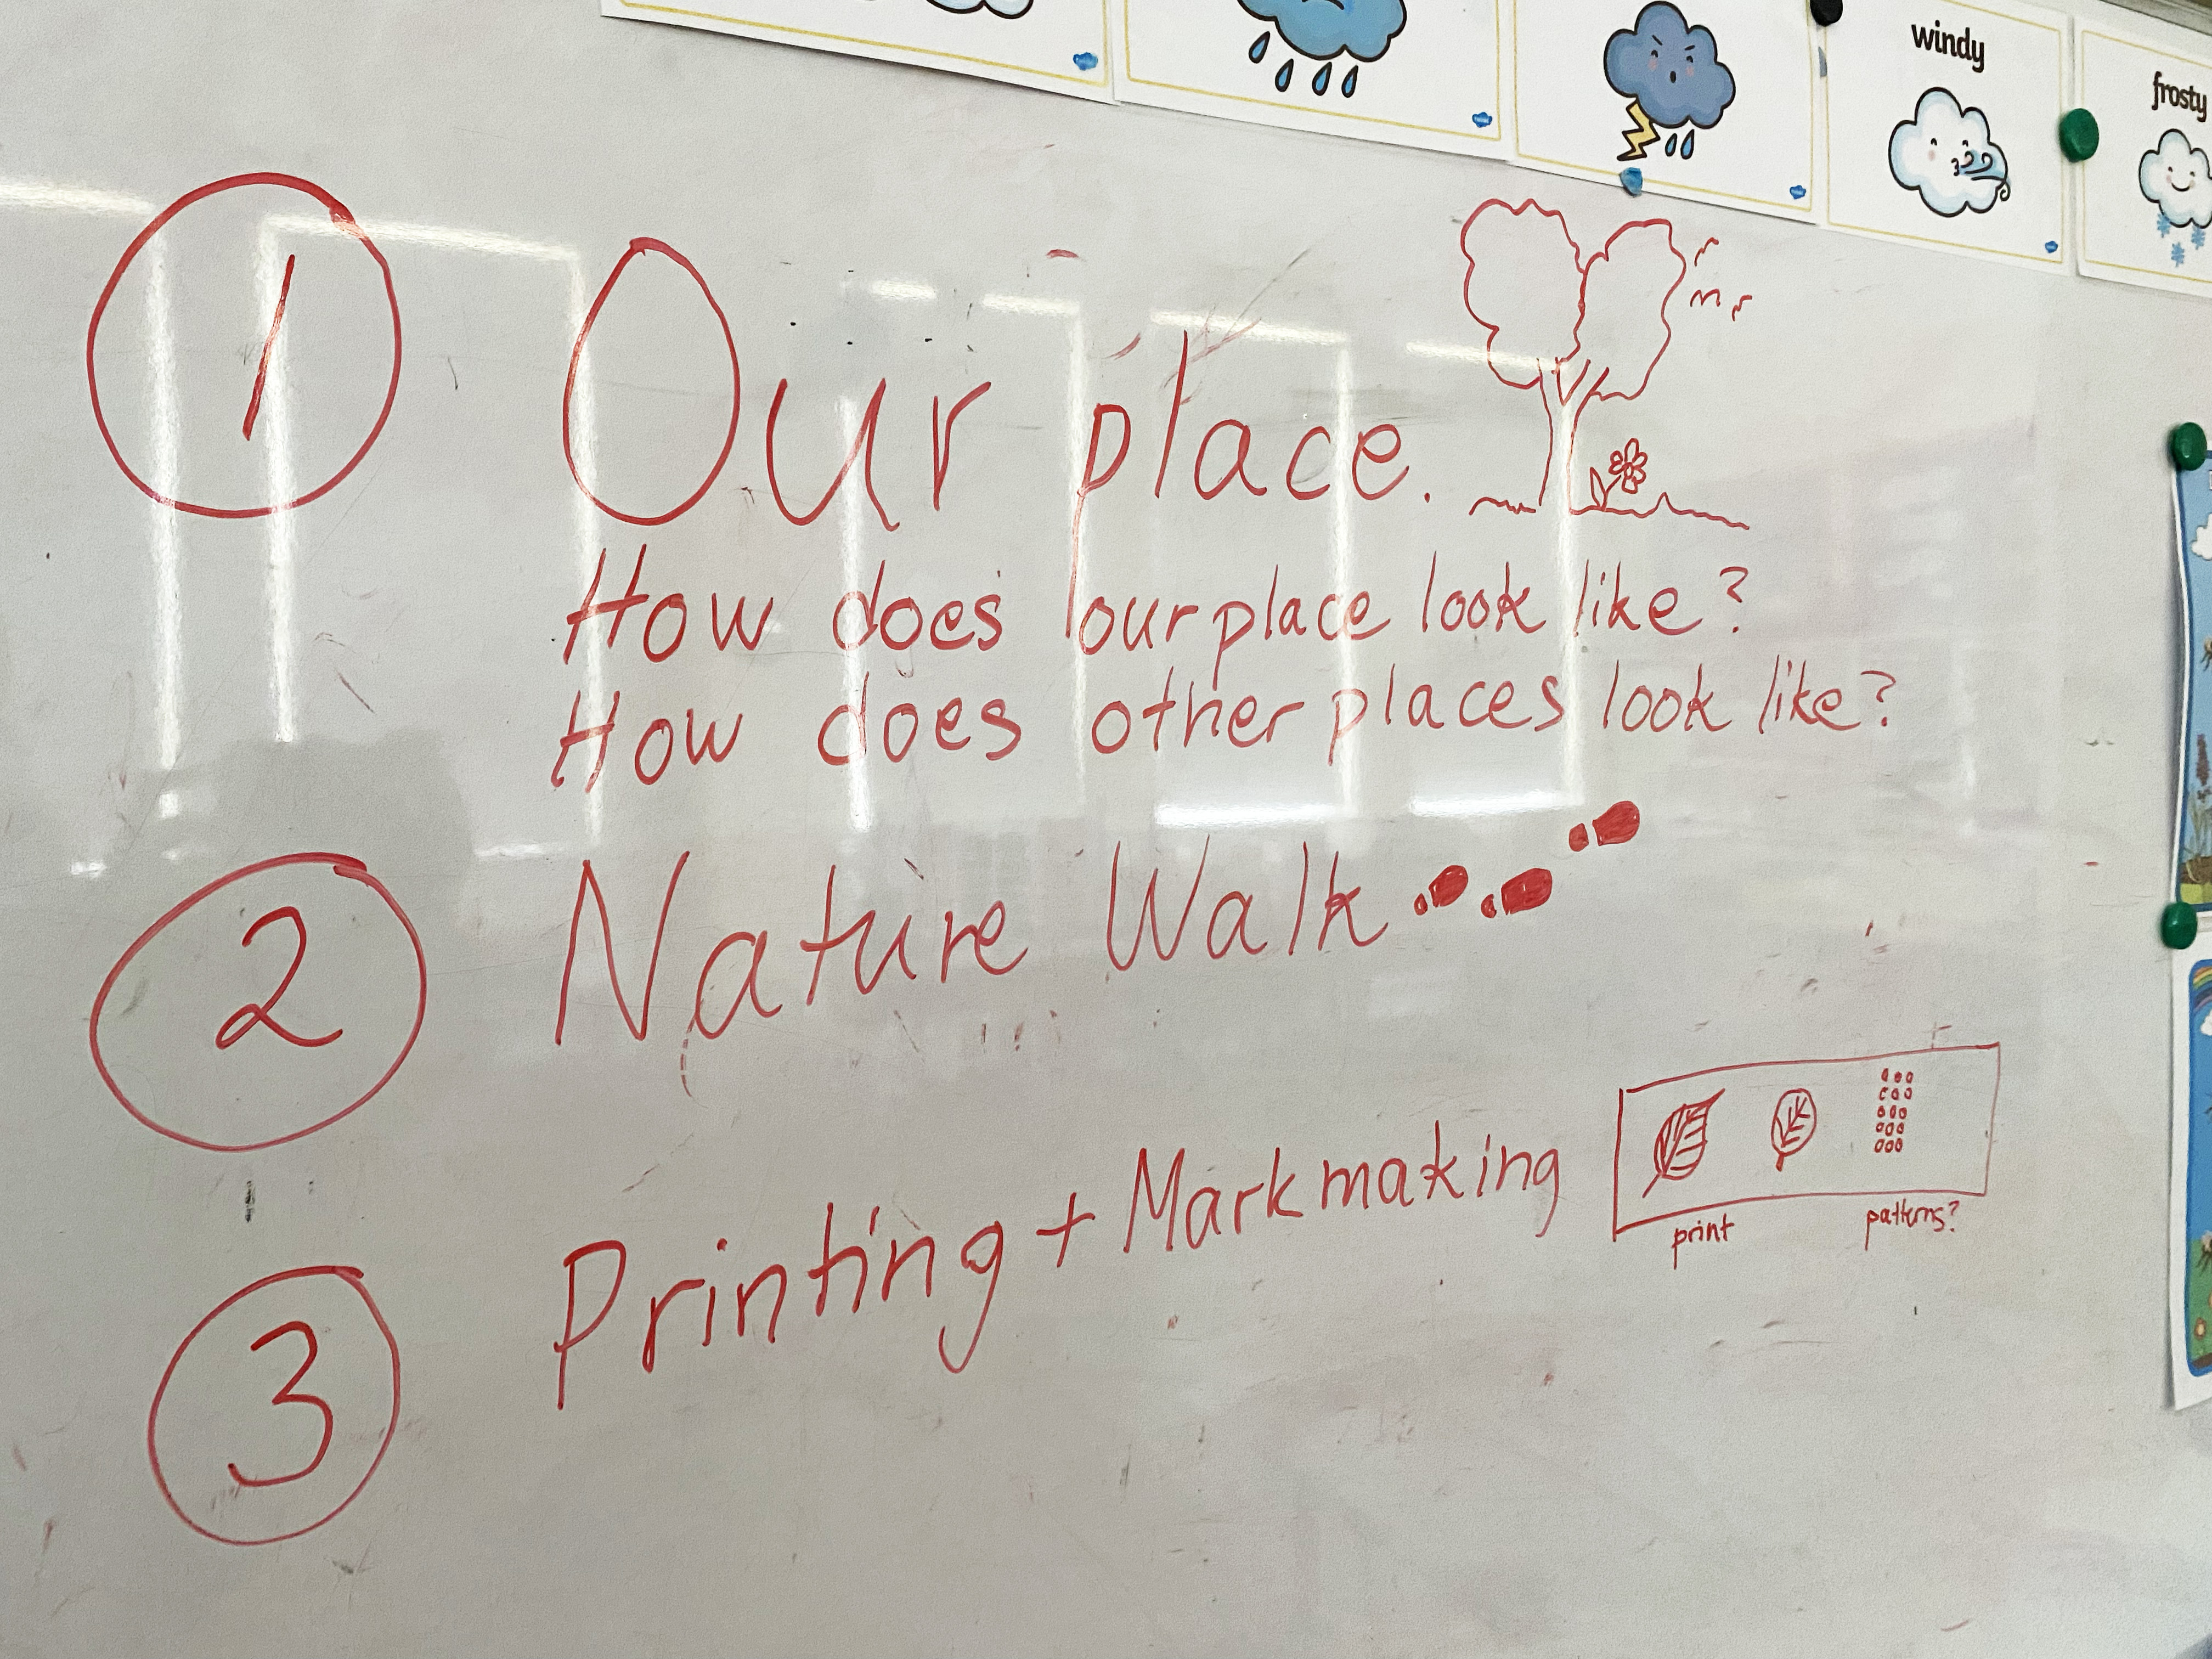 windy
frosty
1 Our place.
How does our place look like?
How does other places look like?
2 Nature Walk
3 Printing + Markmaking
print patterns?